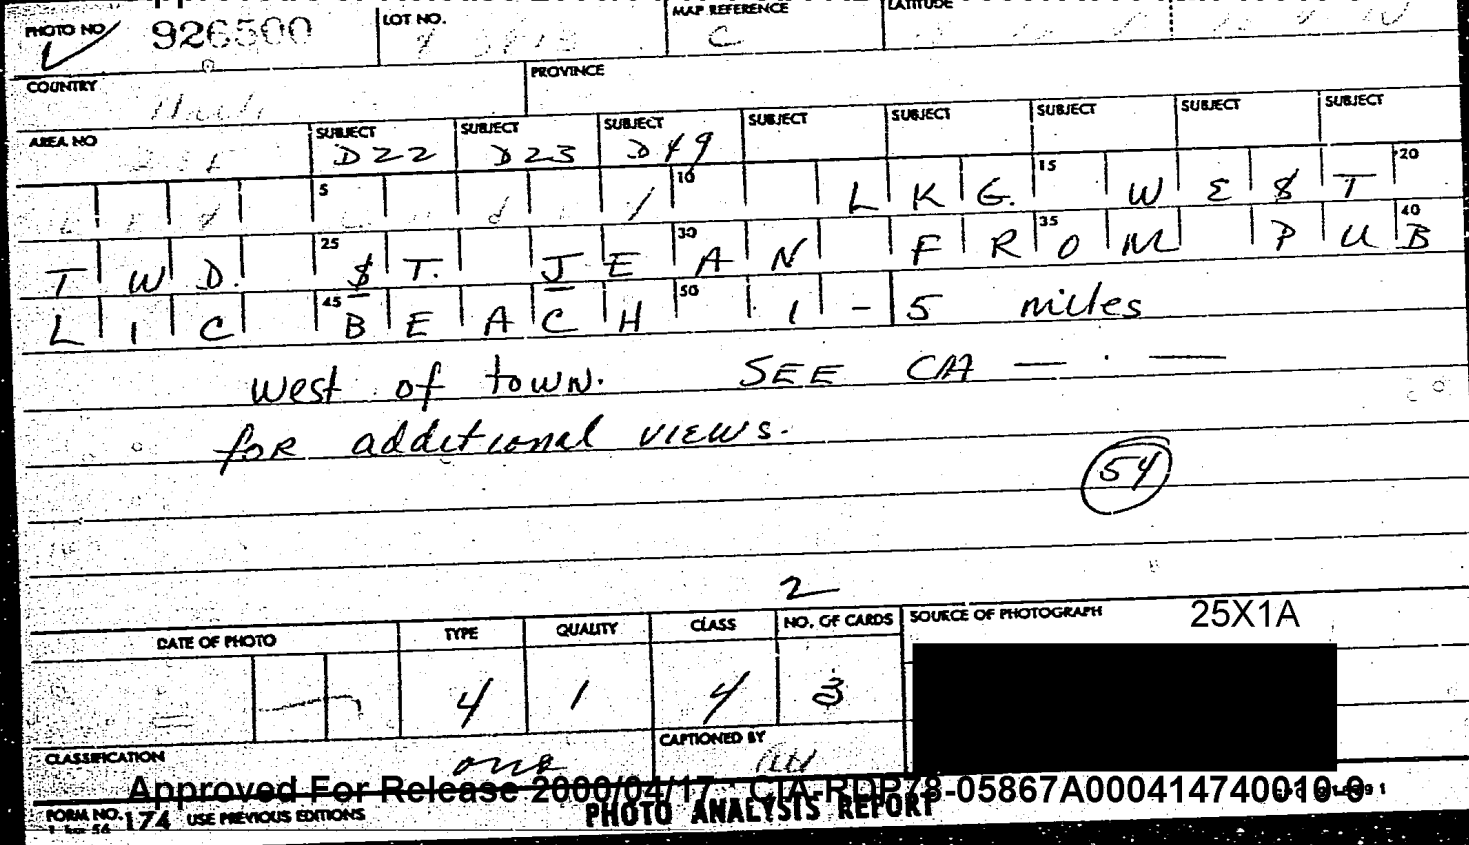 PHOTO NO. 926500 LOT NO. MAP REFERENCE C LATITUDE
COUNTRY PROVINCE
AREA NO SUBJECT D22 SUBJECT D23 SUBJECT D49 SUBJECT SUBJECT SUBJECT SUBJECT SUBJECT
5 10 LKG. 15 WEST 20
TWD. 25 ST. JEAN 30 FROM 35 PUB 40
LIC 45 BEACH 50 1-5 miles
west of town. SEE CA — · —
for additional views.
54
2
DATE OF PHOTO TYPE QUALITY CLASS NO. OF CARDS SOURCE OF PHOTOGRAPH 25X1A
4 1 4 3
CLASSIFICATION one CAPTIONED BY
Approved For Release 2000/04/17 : CIA-RDP78-05867A000414740010-0
FORM NO. 174 USE PREVIOUS EDITIONS PHOTO ANALYSIS REPORT
1 Apr 56